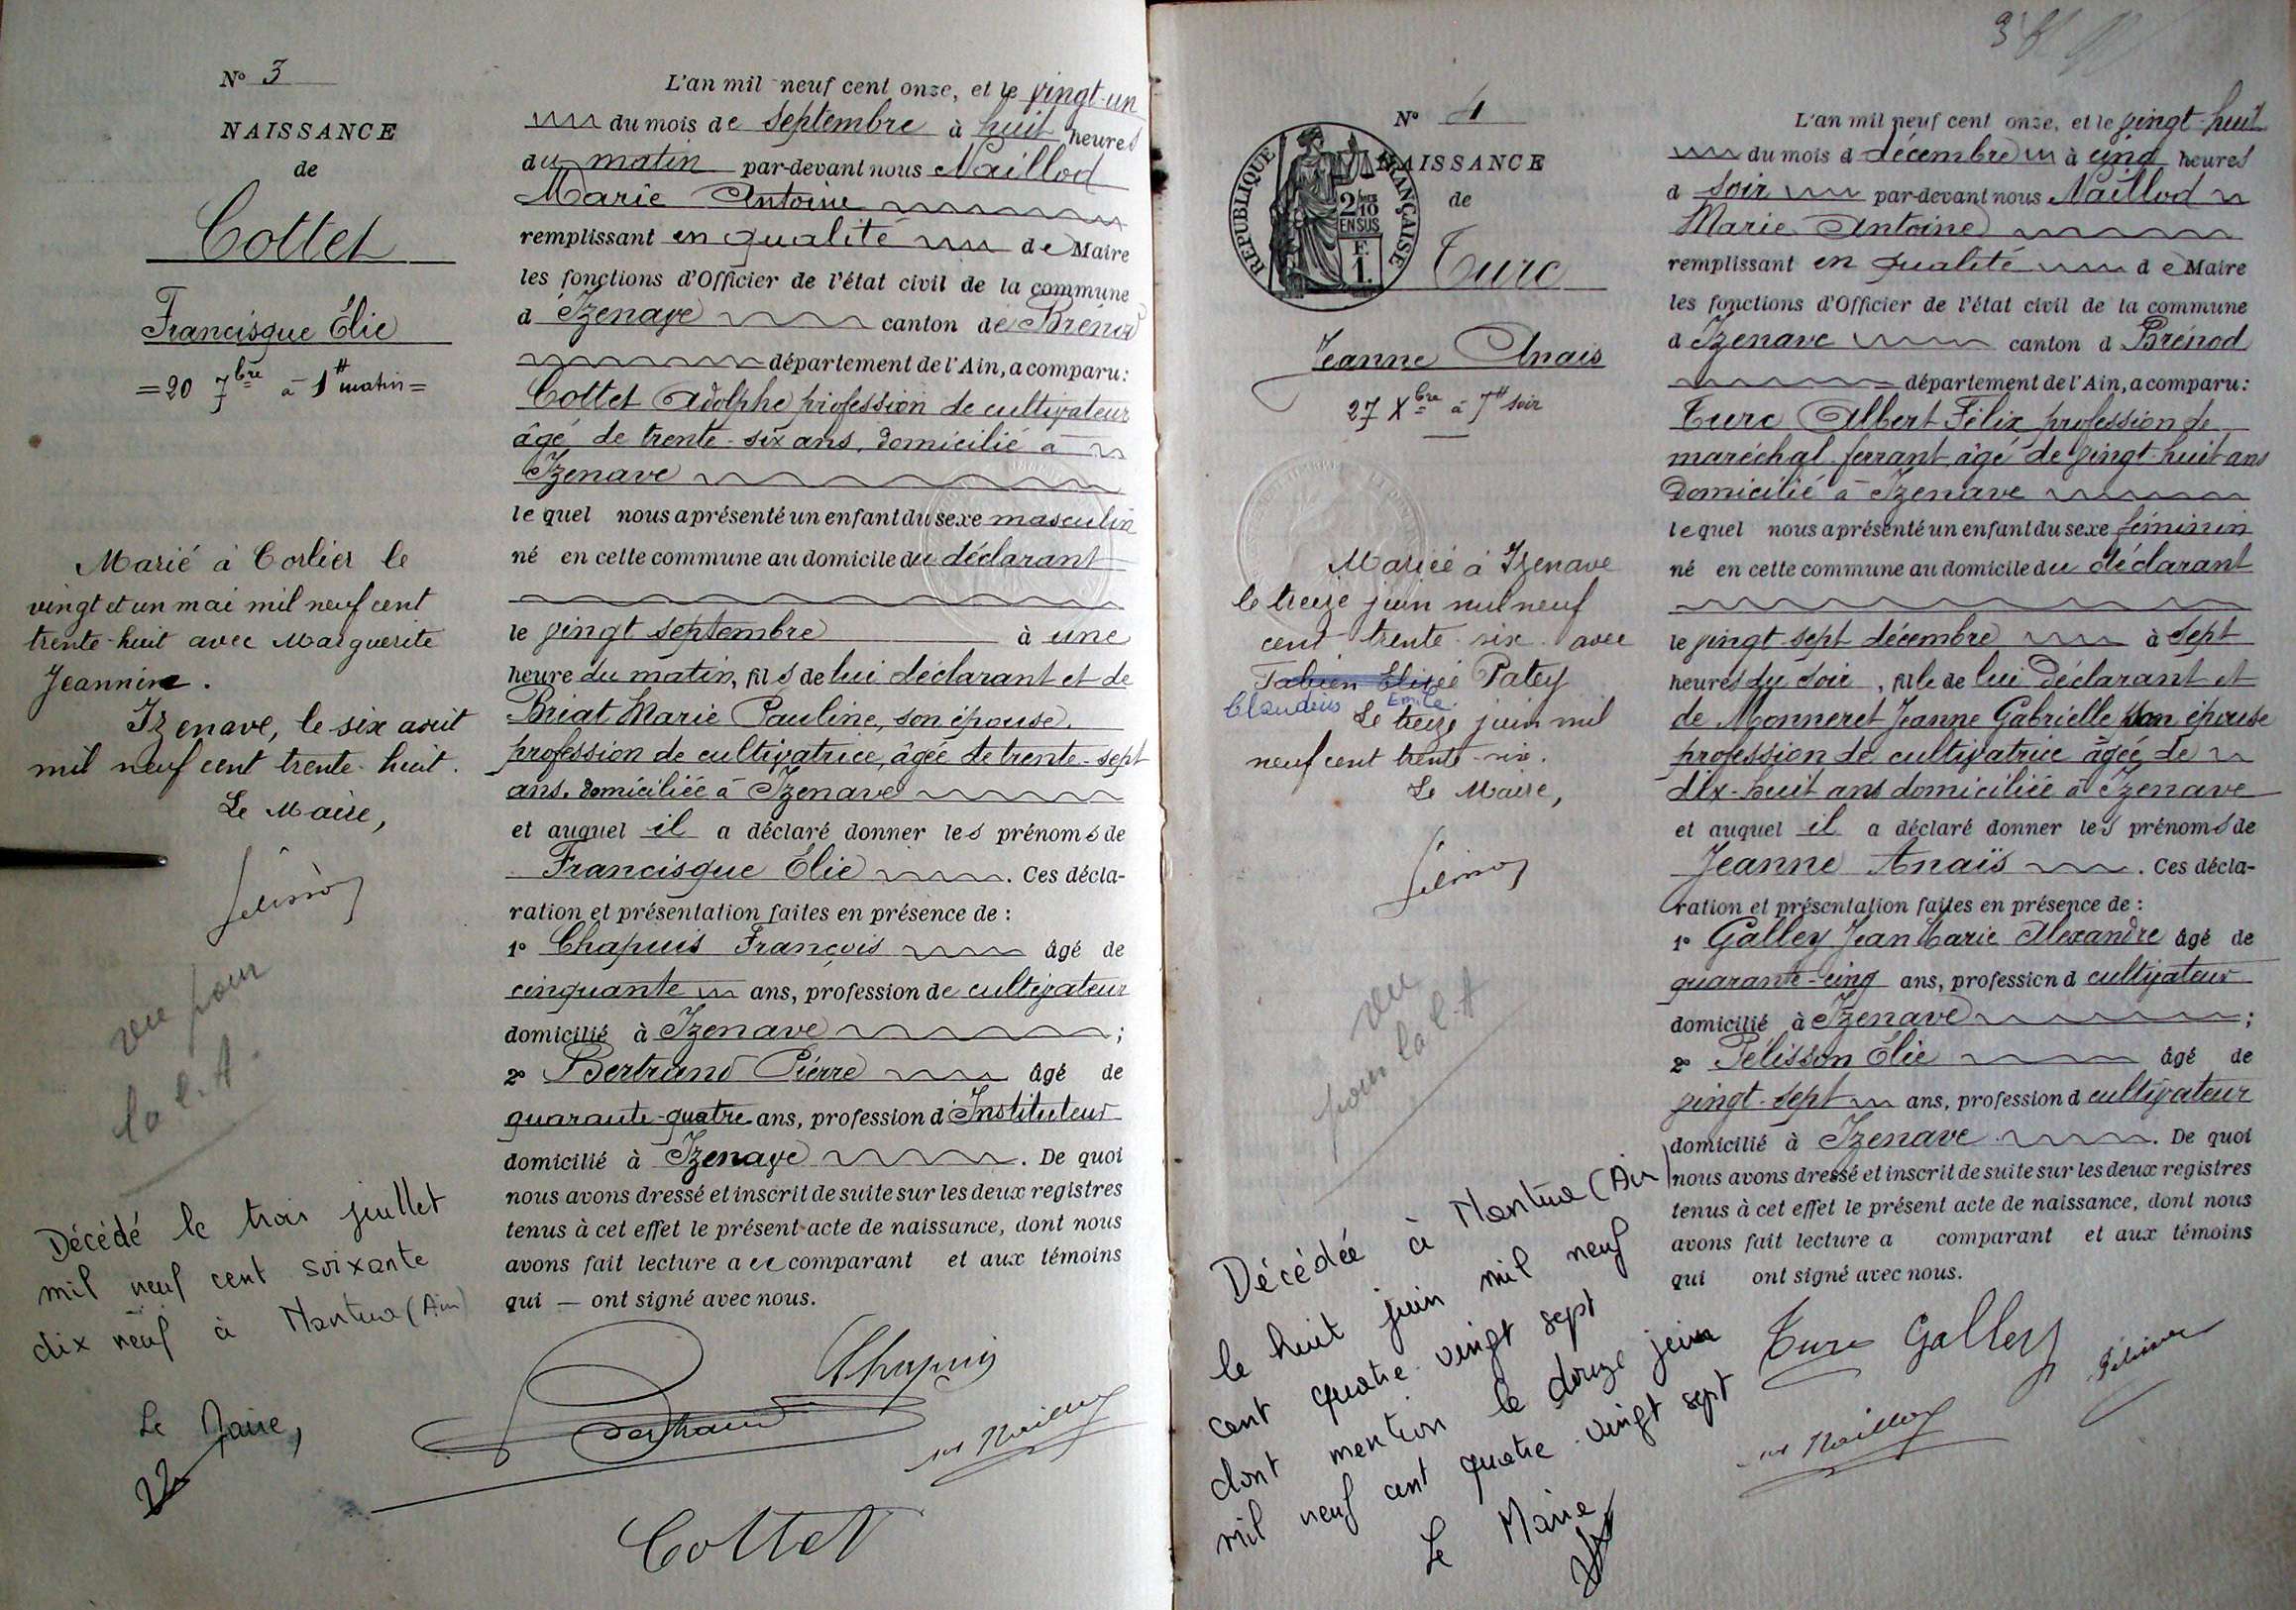 N° 3
NAISSANCE
de
Cottet
Francisque Élie
=20 7bre à 1H matin=
Marié à Corlier le
vingt et un mai mil neuf cent
trente-huit avec Marguerite
Jeannine.
Izenave, le six août
mil neuf cent trente-huit.
Le Maire,
vu pour
la C.A.
Décédé le trois juillet
mil neuf cent soixante
dix neuf à Nantua (Ain)
Le Maire,
L'an mil neuf cent onze, et le vingt-un
du mois de septembre à huit heures
du matin par-devant nous Naillod
Marie Antoine
remplissant en qualité de Maire
les fonctions d'Officier de l'état civil de la commune
d'Izenave canton de Brénod
département de l'Ain, a comparu:
Cottet Adolphe profession de cultivateur
âgé de trente-six ans, domicilié à
Izenave
lequel nous a présenté un enfant du sexe masculin
né en cette commune au domicile du déclarant
le vingt septembre à une
heure du matin, fils de lui déclarant et de
Briat Marie Pauline, son épouse,
profession de cultivatrice, âgée de trente-sept
ans, domiciliée à Izenave
et auquel il a déclaré donner les prénoms de
Francisque Élie. Ces décla-
ration et présentation faites en présence de :
1° Chapuis François âgé de
cinquante ans, profession de cultivateur
domicilié à Izenave ;
2° Bertrand Pierre âgé de
quarante-quatre ans, profession d'Instituteur
domicilié à Izenave. De quoi
nous avons dressé et inscrit de suite sur les deux registres
tenus à cet effet le présent acte de naissance, dont nous
avons fait lecture au comparant et aux témoins
qui — ont signé avec nous.
Chapuis
Bertrand
Naillod
Cottet
N° 4
NAISSANCE
de
RÉPUBLIQUE FRANÇAISE
2/10
EN SUS
F.
1.
Turc
Jeanne Anais
27 Xbre à 7H soir
Mariée à Izenave
le treize juin mil neuf
cent trente-six avec
Fabien Elisée Patey
Claudius Emile
Le treize juin mil
neuf cent trente-six.
Le Maire,
vu
pour la C.A
Décédée à Nantua (Ain)
le huit juin mil neuf
cent quatre-vingt sept
dont mention le douze juin
mil neuf cent quatre-vingt sept
Le Maire
L'an mil neuf cent onze, et le vingt-huit
du mois d décembre à cinq heures
d soir par-devant nous Naillod
Marie Antoine
remplissant en qualité de Maire
les fonctions d'Officier de l'état civil de la commune
d Izenave canton d Brénod
département de l'Ain, a comparu:
Turc Albert Félix profession de
maréchal-ferrant âgé de vingt-huit ans
domicilié à Izenave
lequel nous a présenté un enfant du sexe féminin
né en cette commune au domicile du déclarant
le vingt-sept décembre à sept
heures du soir, fille de lui déclarant et
de Monneret Jeanne Gabrielle son épouse
profession de cultivatrice âgée de
dix-huit ans domiciliée à Izenave
et auquel il a déclaré donner les prénoms de
Jeanne Anaïs. Ces décla-
ration et présentation faites en présence de :
1° Galley Jean Marie Alexandre âgé de
quarante-cinq ans, profession d cultivateur
domicilié à Izenave ;
2° Pélisson Élie âgé de
vingt-sept ans, profession d cultivateur
domicilié à Izenave. De quoi
nous avons dressé et inscrit de suite sur les deux registres
tenus à cet effet le présent acte de naissance, dont nous
avons fait lecture a comparant et aux témoins
qui ont signé avec nous.
Turc Galley
Pélisson
Naillod